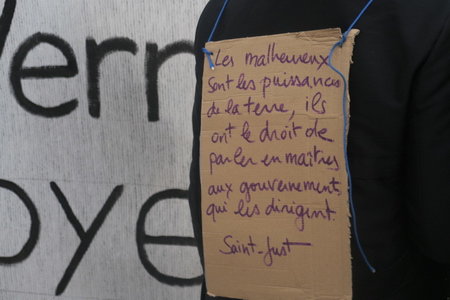 Vern
oye
Les malheureux
sont les puissances
de la terre, ils
ont le droit de
parler en maîtres
aux gouvernements
qui les dirigent.
Saint-Just